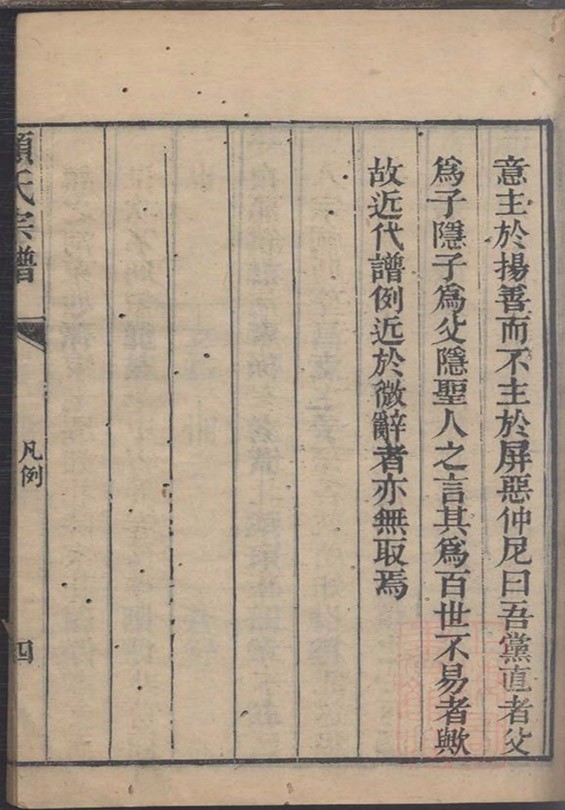 意主於揚善而不主於屏惡仲尼曰吾黨直者父
爲子隱子爲父隱聖人之言其爲百世不易者歟
故近代譜例近於微辭者亦無取焉
氏宗譜
凡例
四